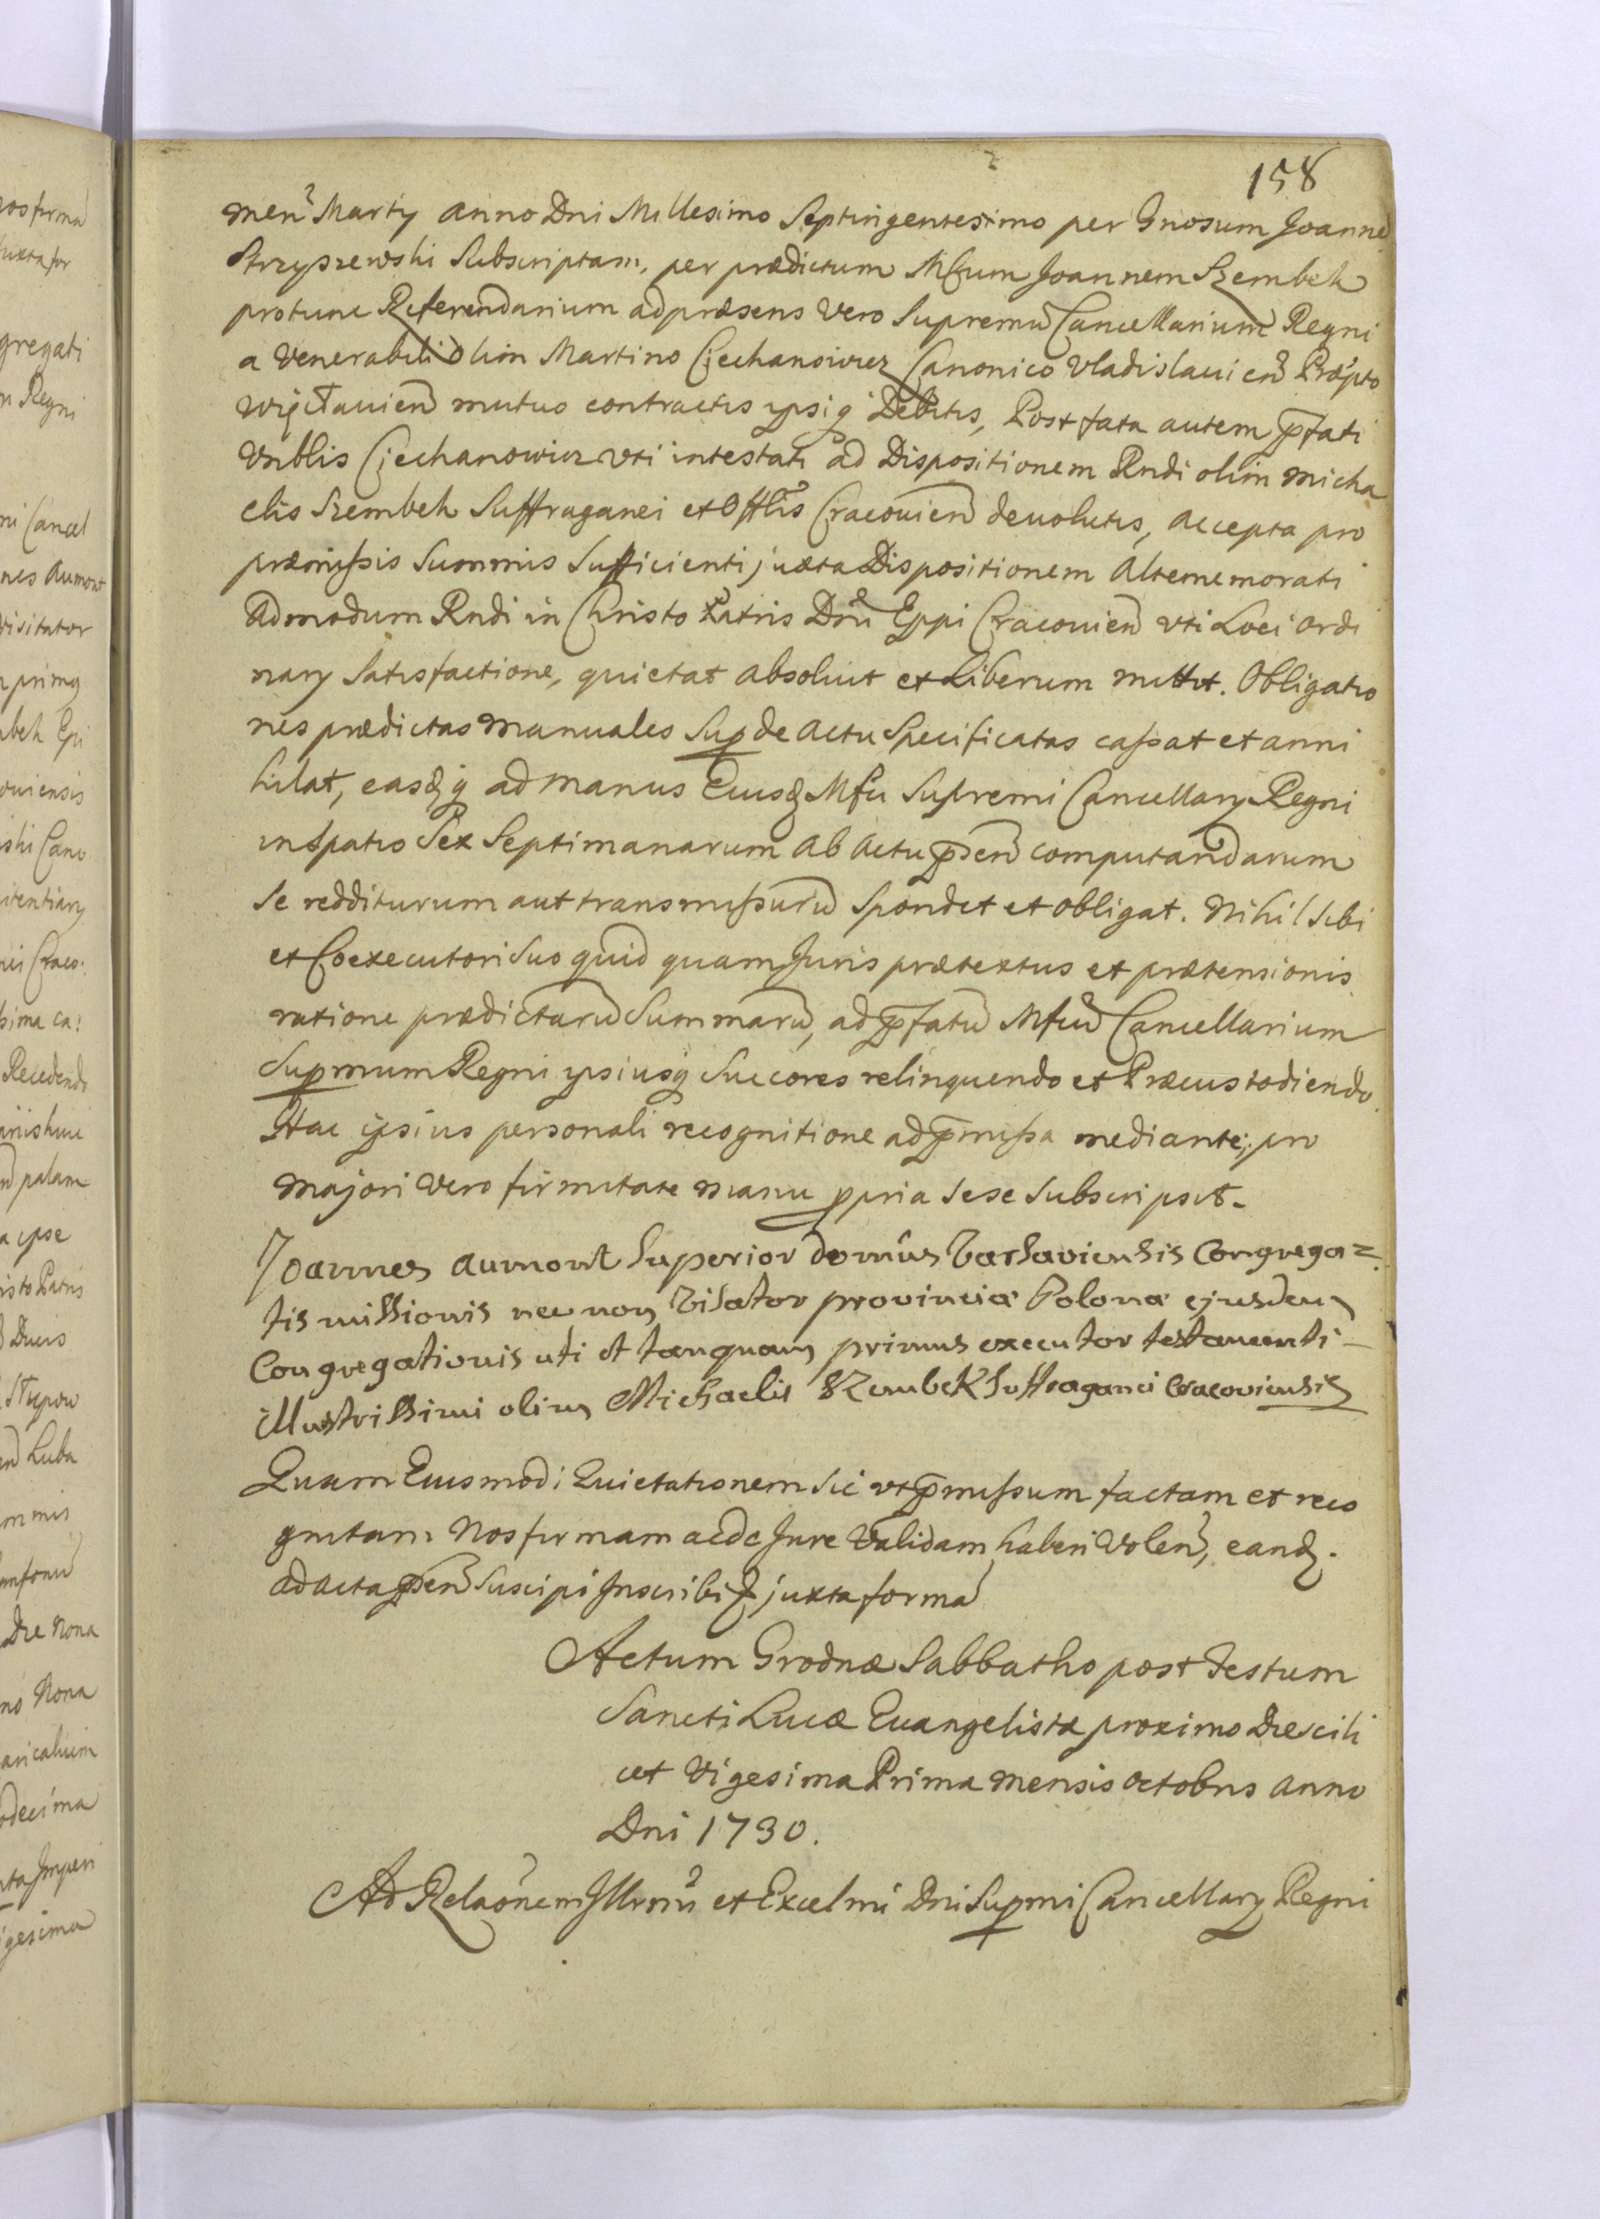 158
menˀ Martÿ anno Dni Millesimo Septingentesimo per Gnosum Joannē
Strzyszewski Subscriptam, per prædictum Mfcum Joannem Szembek
protunc Referendarium ad præsens vero Supremū Cancellarium Regni
a Venerabili olim Martino Ciechanowicz Canonico Vladislavien Præpto
mutuo contractis ipsiq Debitis, Post fata autem p̄fati
Vnblis Ciechanowicz vti intestati ad Dispositionem Rndi olim Micha
elis Szembek Suffraganei et Offlis Cracovien devolutis, accepta pro
præmissis Summis Sufficienti juxta Dispositionem Altememorati
Admodum Rndi in Christo Patris Dnī Eppi Cracovien vti Loci Ordi
narÿ Satisfactione, quietat absoluit et Liberum mittit. Obligatio
nes prædictas Manuales Supde Actu Specificatas cassat et anni
hilat, easq́ q́ ad Manus Eiusq́ Mfci Supremi Cancellarÿ Regni
in Spatio Sex Septimanarum ab Actu p̄sen computandarum
se redditurum aut transmissurū Spondet et obligat. Nihil Sibi
et Coexecutori Suo quid quam Juris prætextus et prætensionis
ratione prædictarū Summarū, ad p̄fatū Mfcū Cancellarium
Supmum Regni ipsiusq́ Succores relinquendo et Præcustodiendo
Hac ipsius personali recognitione ad p̄missa mediante; pro
Majori Vero firmitate manu ppria Sese Subscripsit.
Joannes Aumont Superior domûs Varsaviensis Congrega=
tis missionis nec non Visator provinciæ Polonæ ejusdem
Congregationis uti et tanquam primus executor testamenti
illustrissimi olim Michaelis Szembek Suffraganei Cracoviensis
Quam Eiusmodi Quietationem Sic vt p̄missum factam et reco
gnitam Nos firmam ac de Jure Validam haberi Volenˀ, eandq́.
ad acta p̄sen Suscipi Inscribiq́ juxta formā
Actum Grodnæ Sabbatho post Festum
Sancti Lucæ Evangelistæ proximo Die scili
cet Vigesima Prima Mensis Octobris Anno
Dni 1730.
Ad Relaōnem Illrmi et Excelmi Dni Supmi Cancellarÿ Regni